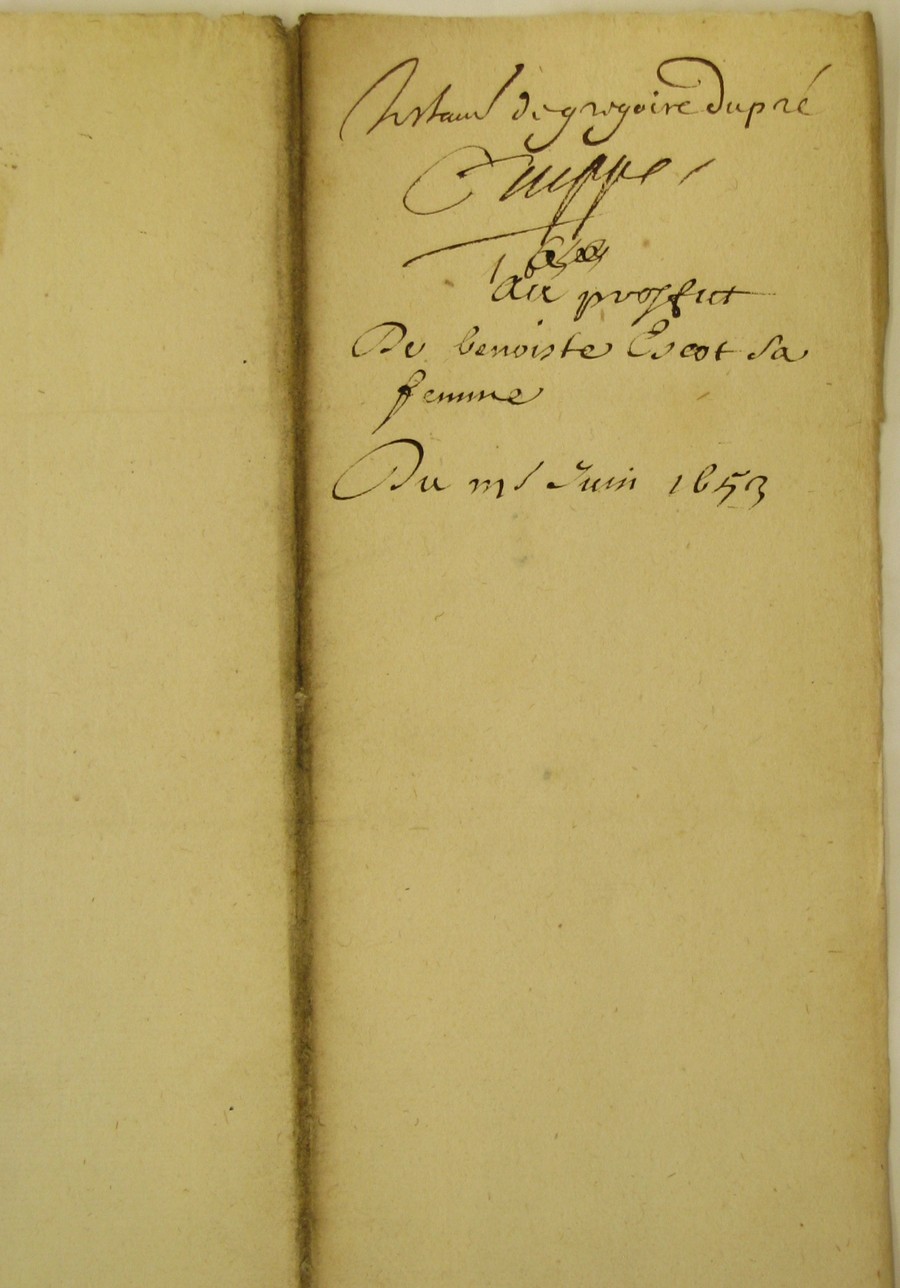 Testamt de gregoire dupré
au proffit
De benoiste Escot sa
femme
Du Juin 1653